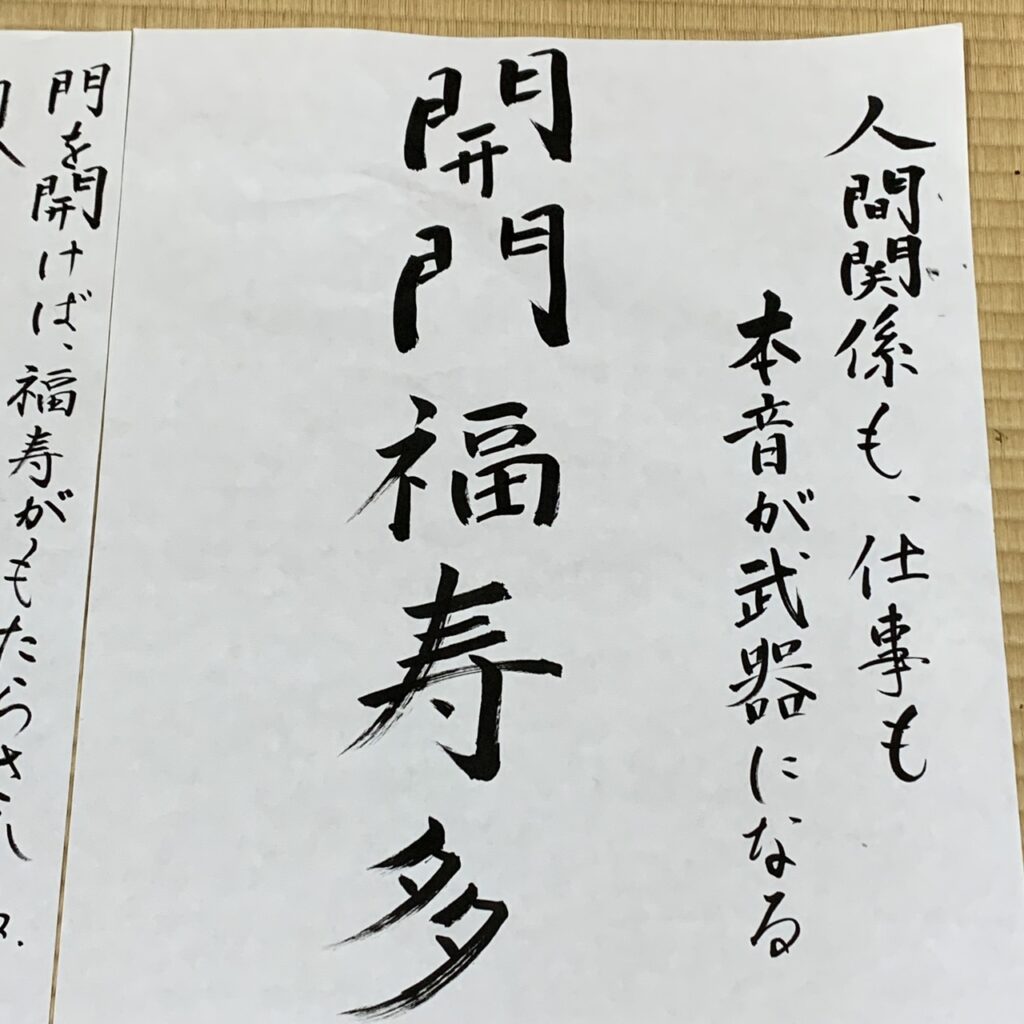 人間関係も、仕事も
本音が武器になる
開門福寿多
門を開けば、福寿がもたらさ